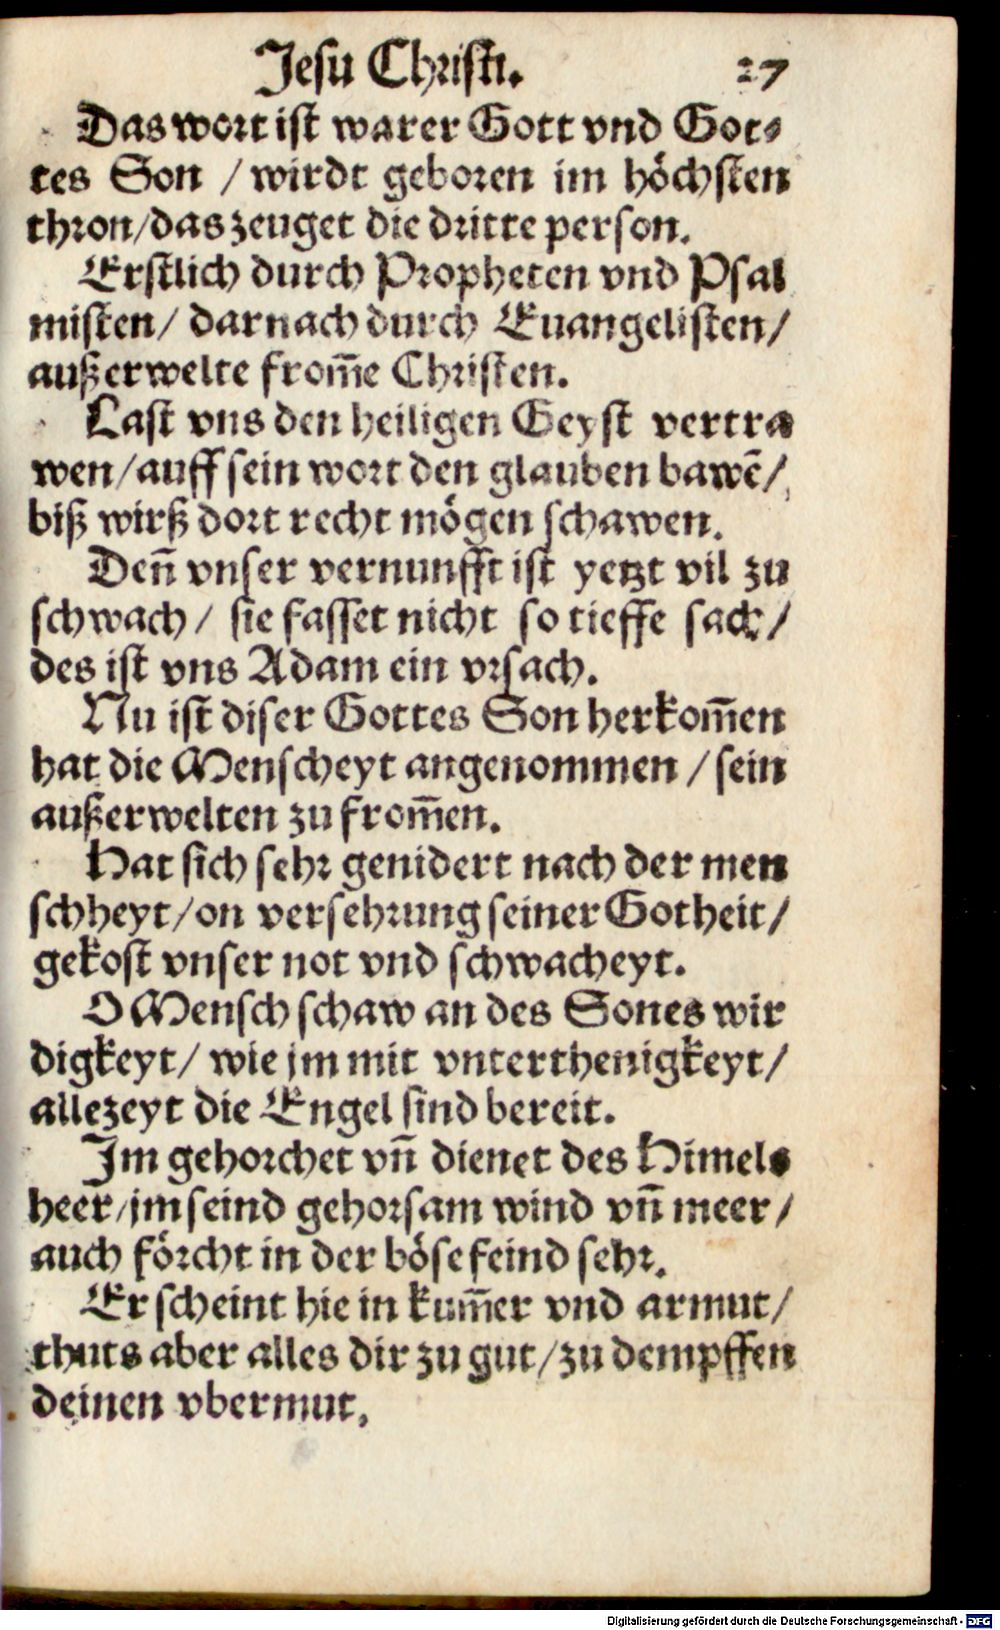 Jesu Christi. 27
Das wort ist warer Gott vnd Got⸗
tes Son / wirdt geboren im höchsten
thron/das zeuget die dritte person.
Erstlich durch Propheten vnd Psal
misten/ darnach durch Euangelisten/
außerwelte from̄e Christen.
Last vns den heiligen Geyst vertra
wen/auff sein wort den glauben bawē/
biß wirß dort recht mögen schawen.
Deñ vnser vernunfft ist yetzt vil zu
schwach/ sie fasset nicht so tieffe sach/
des ist vns Adam ein vrsach.
Nu ist diser Gottes Son herkom̄en
hat die Menscheyt angenommen /sein
außerwelten zu from̄en.
Hat sich sehr genidert nach der men
schheyt/on versehrung seiner Gotheit/
gekost vnser not vnd schwacheyt.
O Mensch schaw an des Sones wir
digkeyt/ wie jm mit vnterthenigkeyt/
allezeyt die Engel sind bereit.
Im gehorchet vñ dienet des Himels
heer/jm seind gehorsam wind vñ meer/
auch förcht in der böse feind sehr.
Er scheint hie in kum̄er vnd armut/
thuts aber alles dir zu gut/zu dempffen
deinen vbermut.
Digitalisierung gefördert durch die Deutsche Forschungsgemeinschaft - DFG